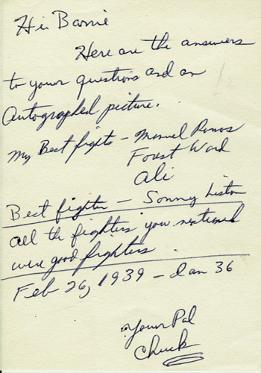 Hi Barrie
Here are the answers
to your questions and an
Autographed picture.
My Best fights - Manuel Ramos
Forest Ward
Ali
Best fighter - Sonny Liston
all the fighters you mentioned
were good fighters.
Feb 26, 1939 - I am 36
Your Pal
Chuck